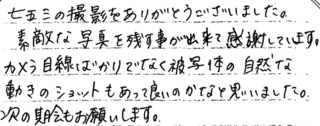 七五三の撮影をありがとうございました。
素敵な写真を残す事が出来て感謝しています。
カメラ目線ばかりでなく被写体の自然な
動きのショットもあって良いのかなと思いました。
次の期会もお願いします。